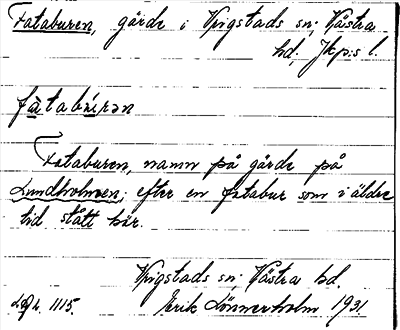 Fataburen, gärde i Vrigstads sn; Västra
hd, Jkp:s l.
fàtabúrən
Fataburen, namn på gärde på
Lundholmen; efter en fatabur som i äldre
tid stått här.
Vrigstads sn; Västra hd.
1115.
Erik Lönnerholm 1931